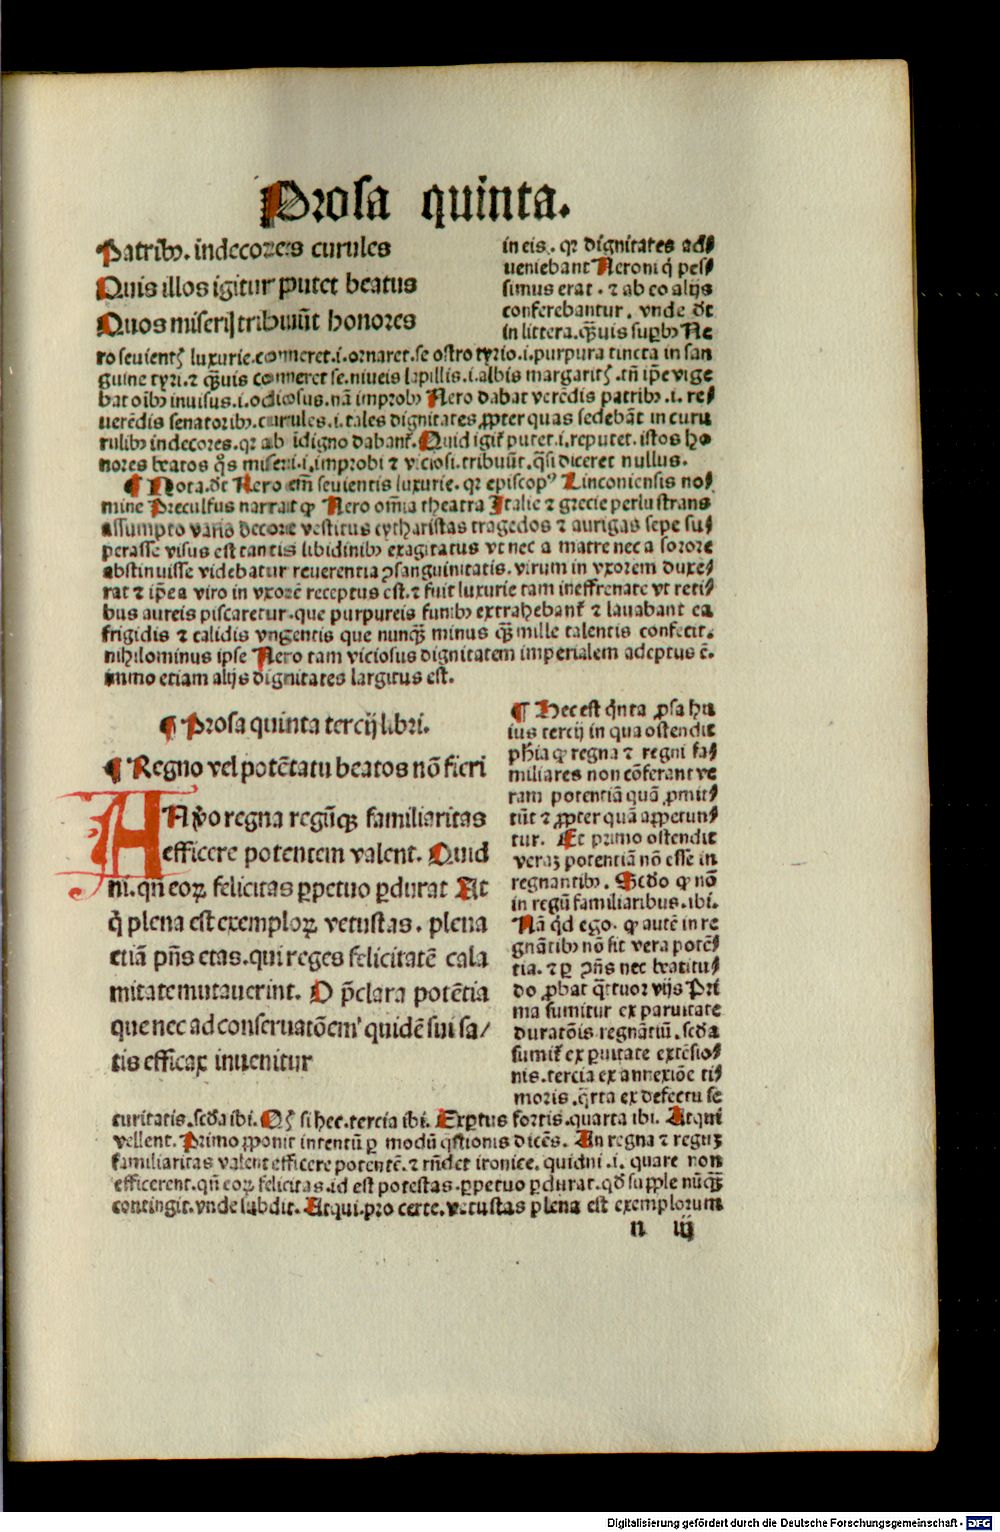 Prosa quinta.
Patribꝰ. indecores curules
Quis illos igitur putet beatus
Quos miserij tribuũt honores
in eis. qꝛ dignitates ad⸗
ueniebant Neroni q̃ pes⸗
simus erat. ⁊ ab eo alijs
conferebantur. vnde dt̄
in littera. q̃uis supbꝰ Ne
ro seuientꝭ luxurie. comeret .i. ornaret. se ostro tyrio .i. purpura tincta in san
guine tyri. ⁊ q̃uis comeret se. niueis lapillis .i. albis margaritꝭ. tñ ip̃e vige
bat oĩbꝰ inuisus .i. odiosus. nã improbꝰ Nero dabat verẽdis patribꝰ .i. re⸗
uerẽdis senatoribꝰ. curules .i. tales dignitates ꝓpter quas sedebãt in curu
rulibꝰ indecores. qꝛ ab idigno dabant̃. Quid igit̃ putet .i. reputet. istos ho
nores beatos q̃s miseri .i. improbi ⁊ viciosi. tribuũt. q̃si diceret nullus.
¶ Nota. dt̄ Nero em̃ seuientis luxurie. qꝛ episcopꝰ Linconiensis no⸗
mine Preculfus narrat ꝙ Nero om̃ia theatra Italie ⁊ grecie perlustrans
assumpto vario decore vestitus cytharistas tragedos ⁊ aurigas sepe su⸗
perasse visus est tantis libidinibꝰ exagitatus vt nec a matre nec a sorore
abstinuisse videbatur reuerentia ꝯsanguinitatis. virum in vxorem duxe⸗
rat ⁊ ip̃e a viro in vxorẽ receptus est. ⁊ fuit luxurie tam ineffrenate vt reti⸗
bus aureis piscaretur. que purpureis funibꝰ extrahebant̃ ⁊ lauabant ea
frigidis ⁊ calidis vngentis que nunq̃ minus q̃ mille talentis confecit.
nihilominus ipse Nero tam viciosus dignitatem imperialem adeptus ẽ.
immo etiam alijs dignitates largitus est.
¶ Prosa quinta tercij libri.
¶ Regno vel potẽtatu beatos nõ fieri
AN ṽo regna regũqꝫ familiaritas
efficere potentem valent. Quid
ni. qñ eoꝝ felicitas ꝑpetuo ꝑdurat At
q̃ plena est exemploꝝ vetustas. plena
etiã pñs etas. qui reges felicitatẽ cala
mitate mutauerint. O p̃clara potẽtia
que nec ad conseruatõem quidẽ sui sa⸗
tis efficax inuenitur
¶ Hec est q̃nta ꝓsa hu
ius tercij in qua ostendit
ph̃ia ꝙ regna ⁊ regni fa⸗
miliares non cõferant ve
ram potentiã quã ꝓmit⸗
tũt ⁊ ꝓpter quã appetun⸗
tur. Et primo ostendit
veraꝫ potentiã nõ esse in
regnantibꝰ. Scd̃o ꝙ nõ
in regũ familiaribus. ibi.
Nã q̃d ego. ꝙ autẽ in re
gnãtibꝰ nõ sit vera potẽ⸗
tia. ⁊ ꝑ ꝯñs nec beatitu⸗
do ꝓbat q̃ttuor vijs Pri
ma sumitur ex paruitate
duratõis regnãtiũ. scd̃a
sumit̃ ex ꝑuitate extẽsio⸗
nis. tercia ex annexiõe ti⸗
moris. q̃rta ex defectu se
curitatis. scd̃a ibi. Qꝭ si hec. tercia ibi. Exꝑtus fortis. quarta ibi. Atqui
vellent. Primo ꝓponit intentũ ꝑ modũ q̃stionis dicẽs. An regna ⁊ reguꝫ
familiaritas valent efficere potentẽ. ⁊ rñdet ironice. quidni .i. quare non
efficerent. qñ eoꝝ felicitas. id est potestas. ꝑpetuo ꝑdurat. qd̃ supple nũq̃
contingit. vnde subdit. Atqui. pro certe. vetustas plena est exemplorum
n iij
Digitalisierung gefördert durch die Deutsche Forschungsgemeinschaft - DFG